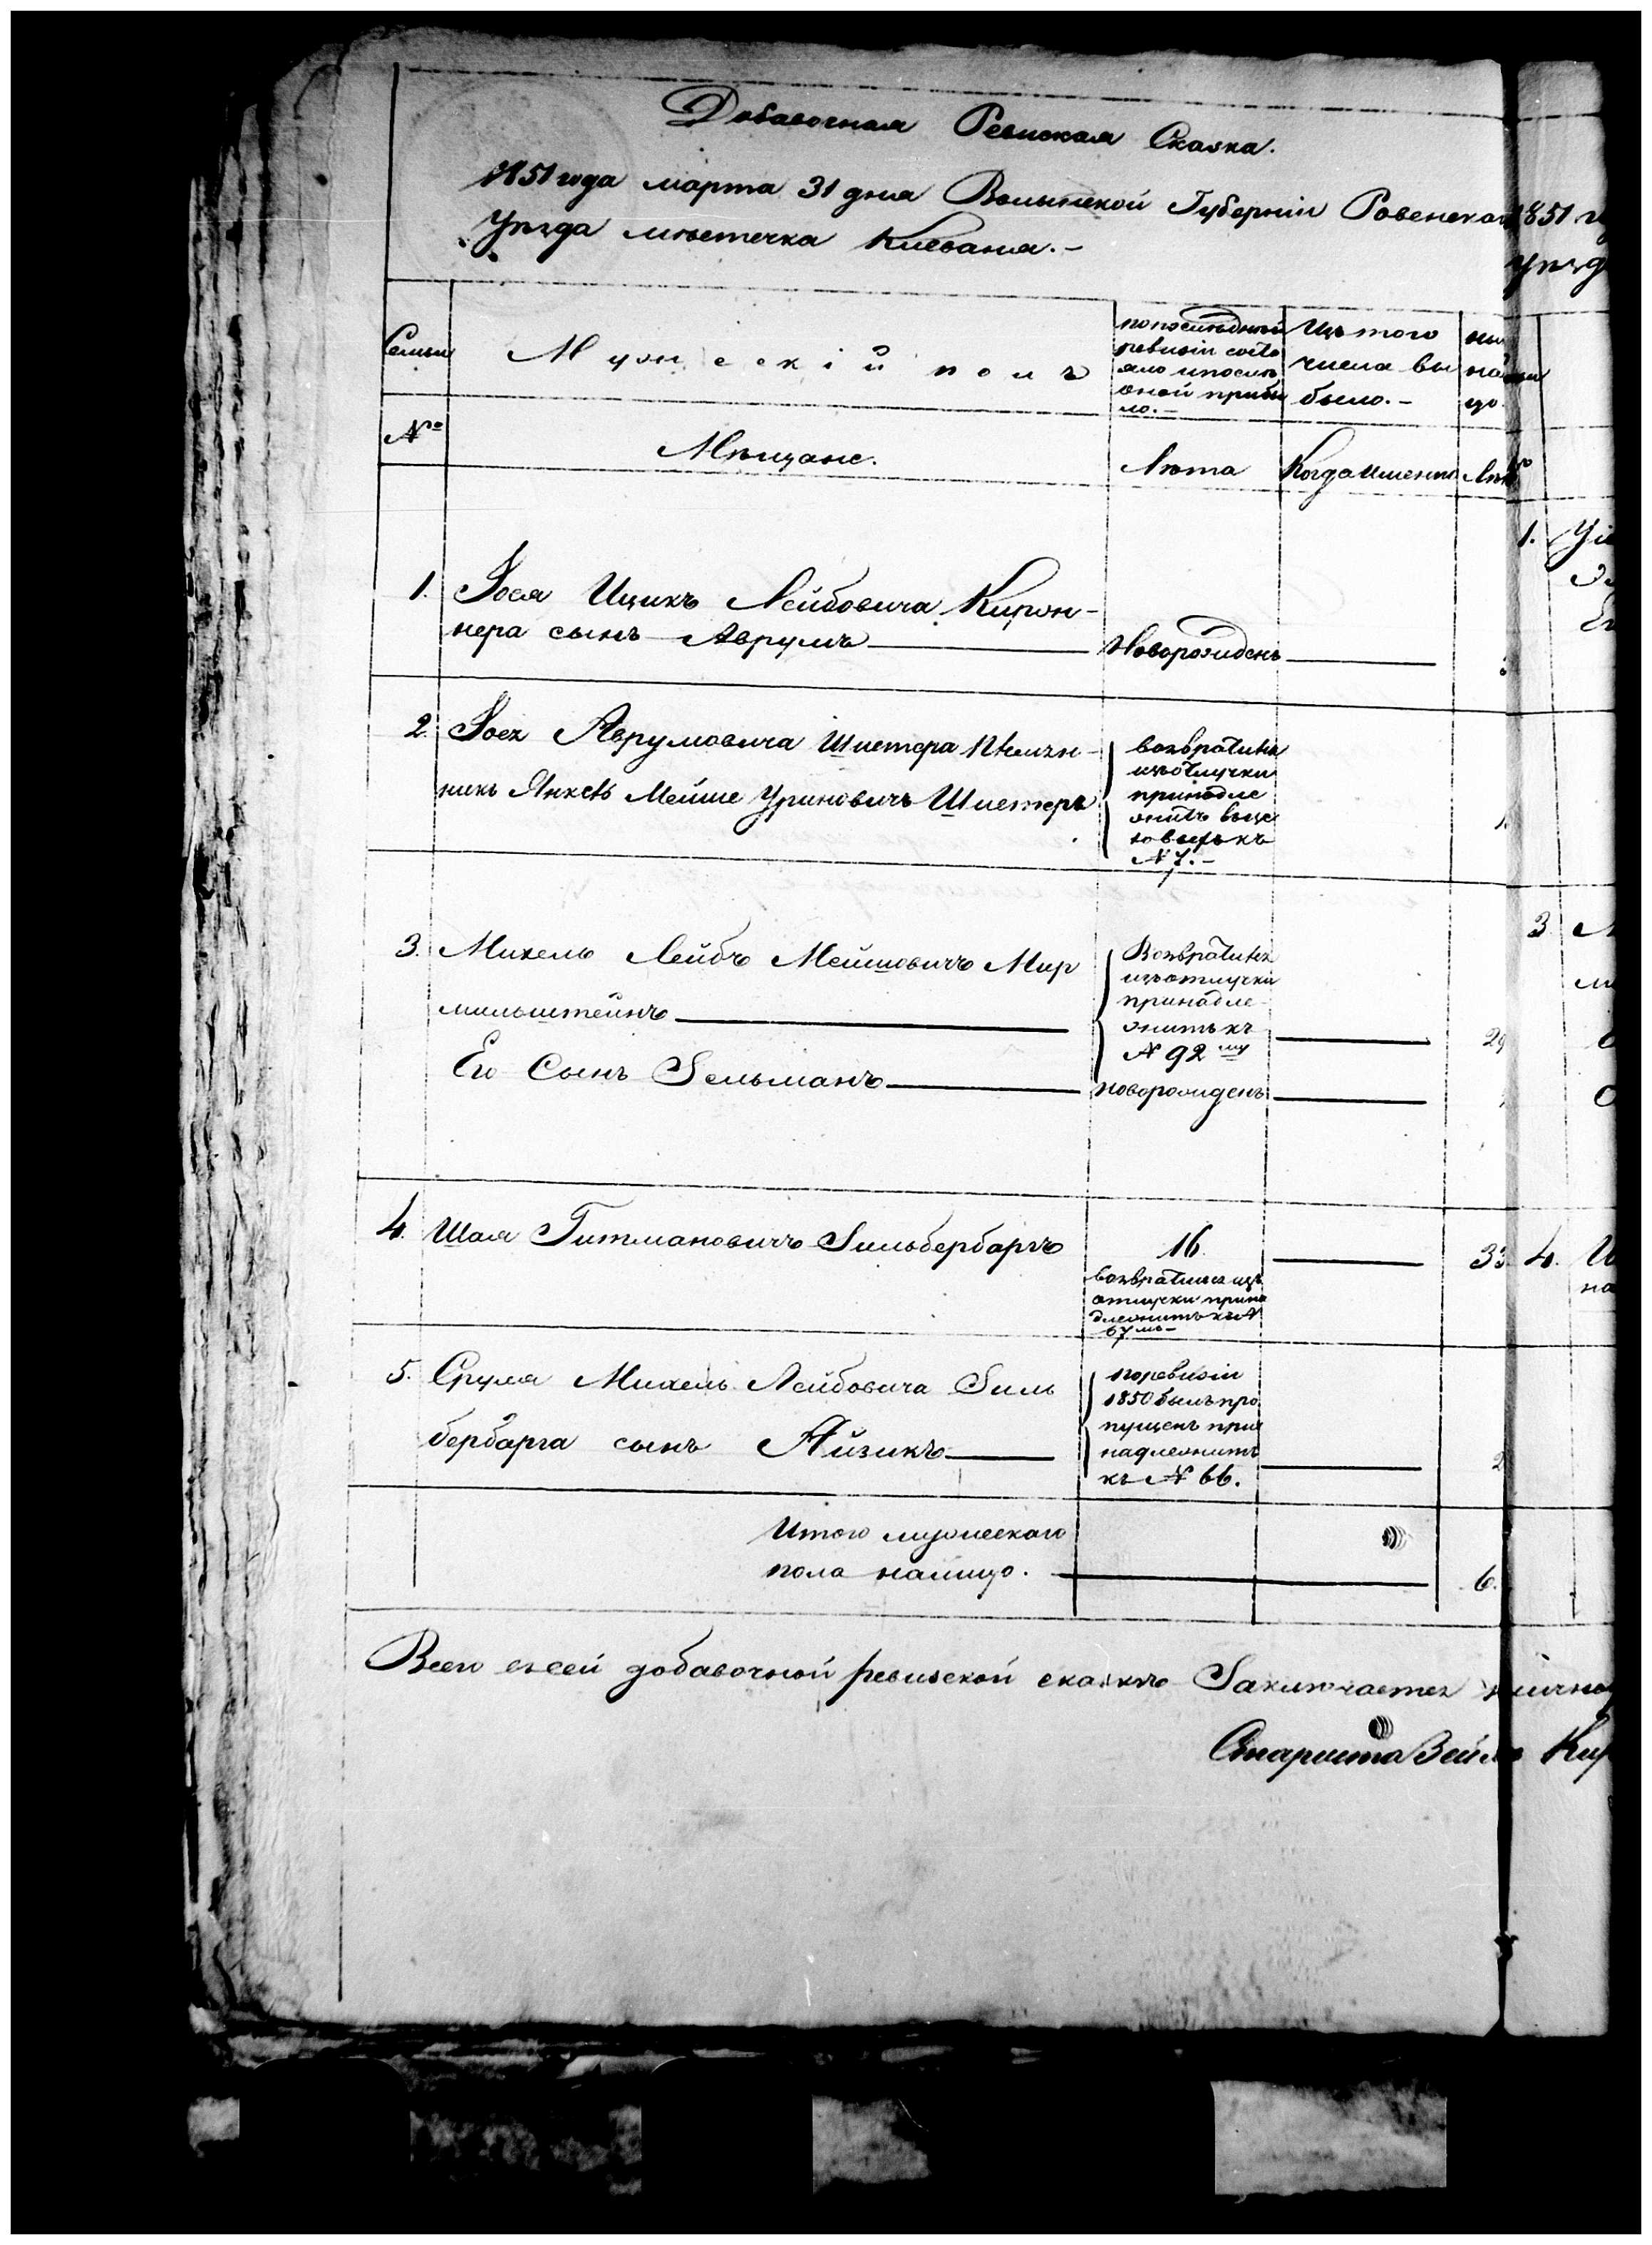 Добавочная Ревиская Сказка.
1851 года марта 31 дня Волынской Губерніи Ровенскаго
Уѣзда мѣстечка Клеваня.-
Семьи
Мужескій полъ
по последней
ревизіи состо
яло и после
оной прибы
ло.-
Изъ того
числа вы
было.-
№
Мѣщане.
Лѣта
Когда именно
1. Іося Ицикъ Лейбовича Киржн-
нера сынъ Аврумъ
Новорожденъ
2. Іосъ Аврумовича Шпетера племян-
никъ Янкель Мейше Уриновичъ Шпетеръ
возвратился
изъ отлучки
принадле
житъ
къ
№ 7.-
3. Михель Лейбъ Мейшовичъ Мир
мильштейнъ
Возвратился
изъ отлучки
принадле-
житъ къ
№ 92 му
29
Его Сынъ Зельманъ
новорожденъ
4. Шая Гитмановичъ Зильбербаргъ
16
33
возвратился изъ
отлучки прина
длежитъ къ №
67 мъ-
5. Сруля Михель Лейбовича Зиль
бербарга сынъ Айзикъ
по ревизіи
1850 былъ про
пущенъ при
надлежитъ
къ № 66.
2
Итого мужескаго
пола налицо.
6.
Всего въ сей добавочной ревизской сказкѣ Заключается
Староста Зейл
1851 г
Уѣзд
1.
3
4.